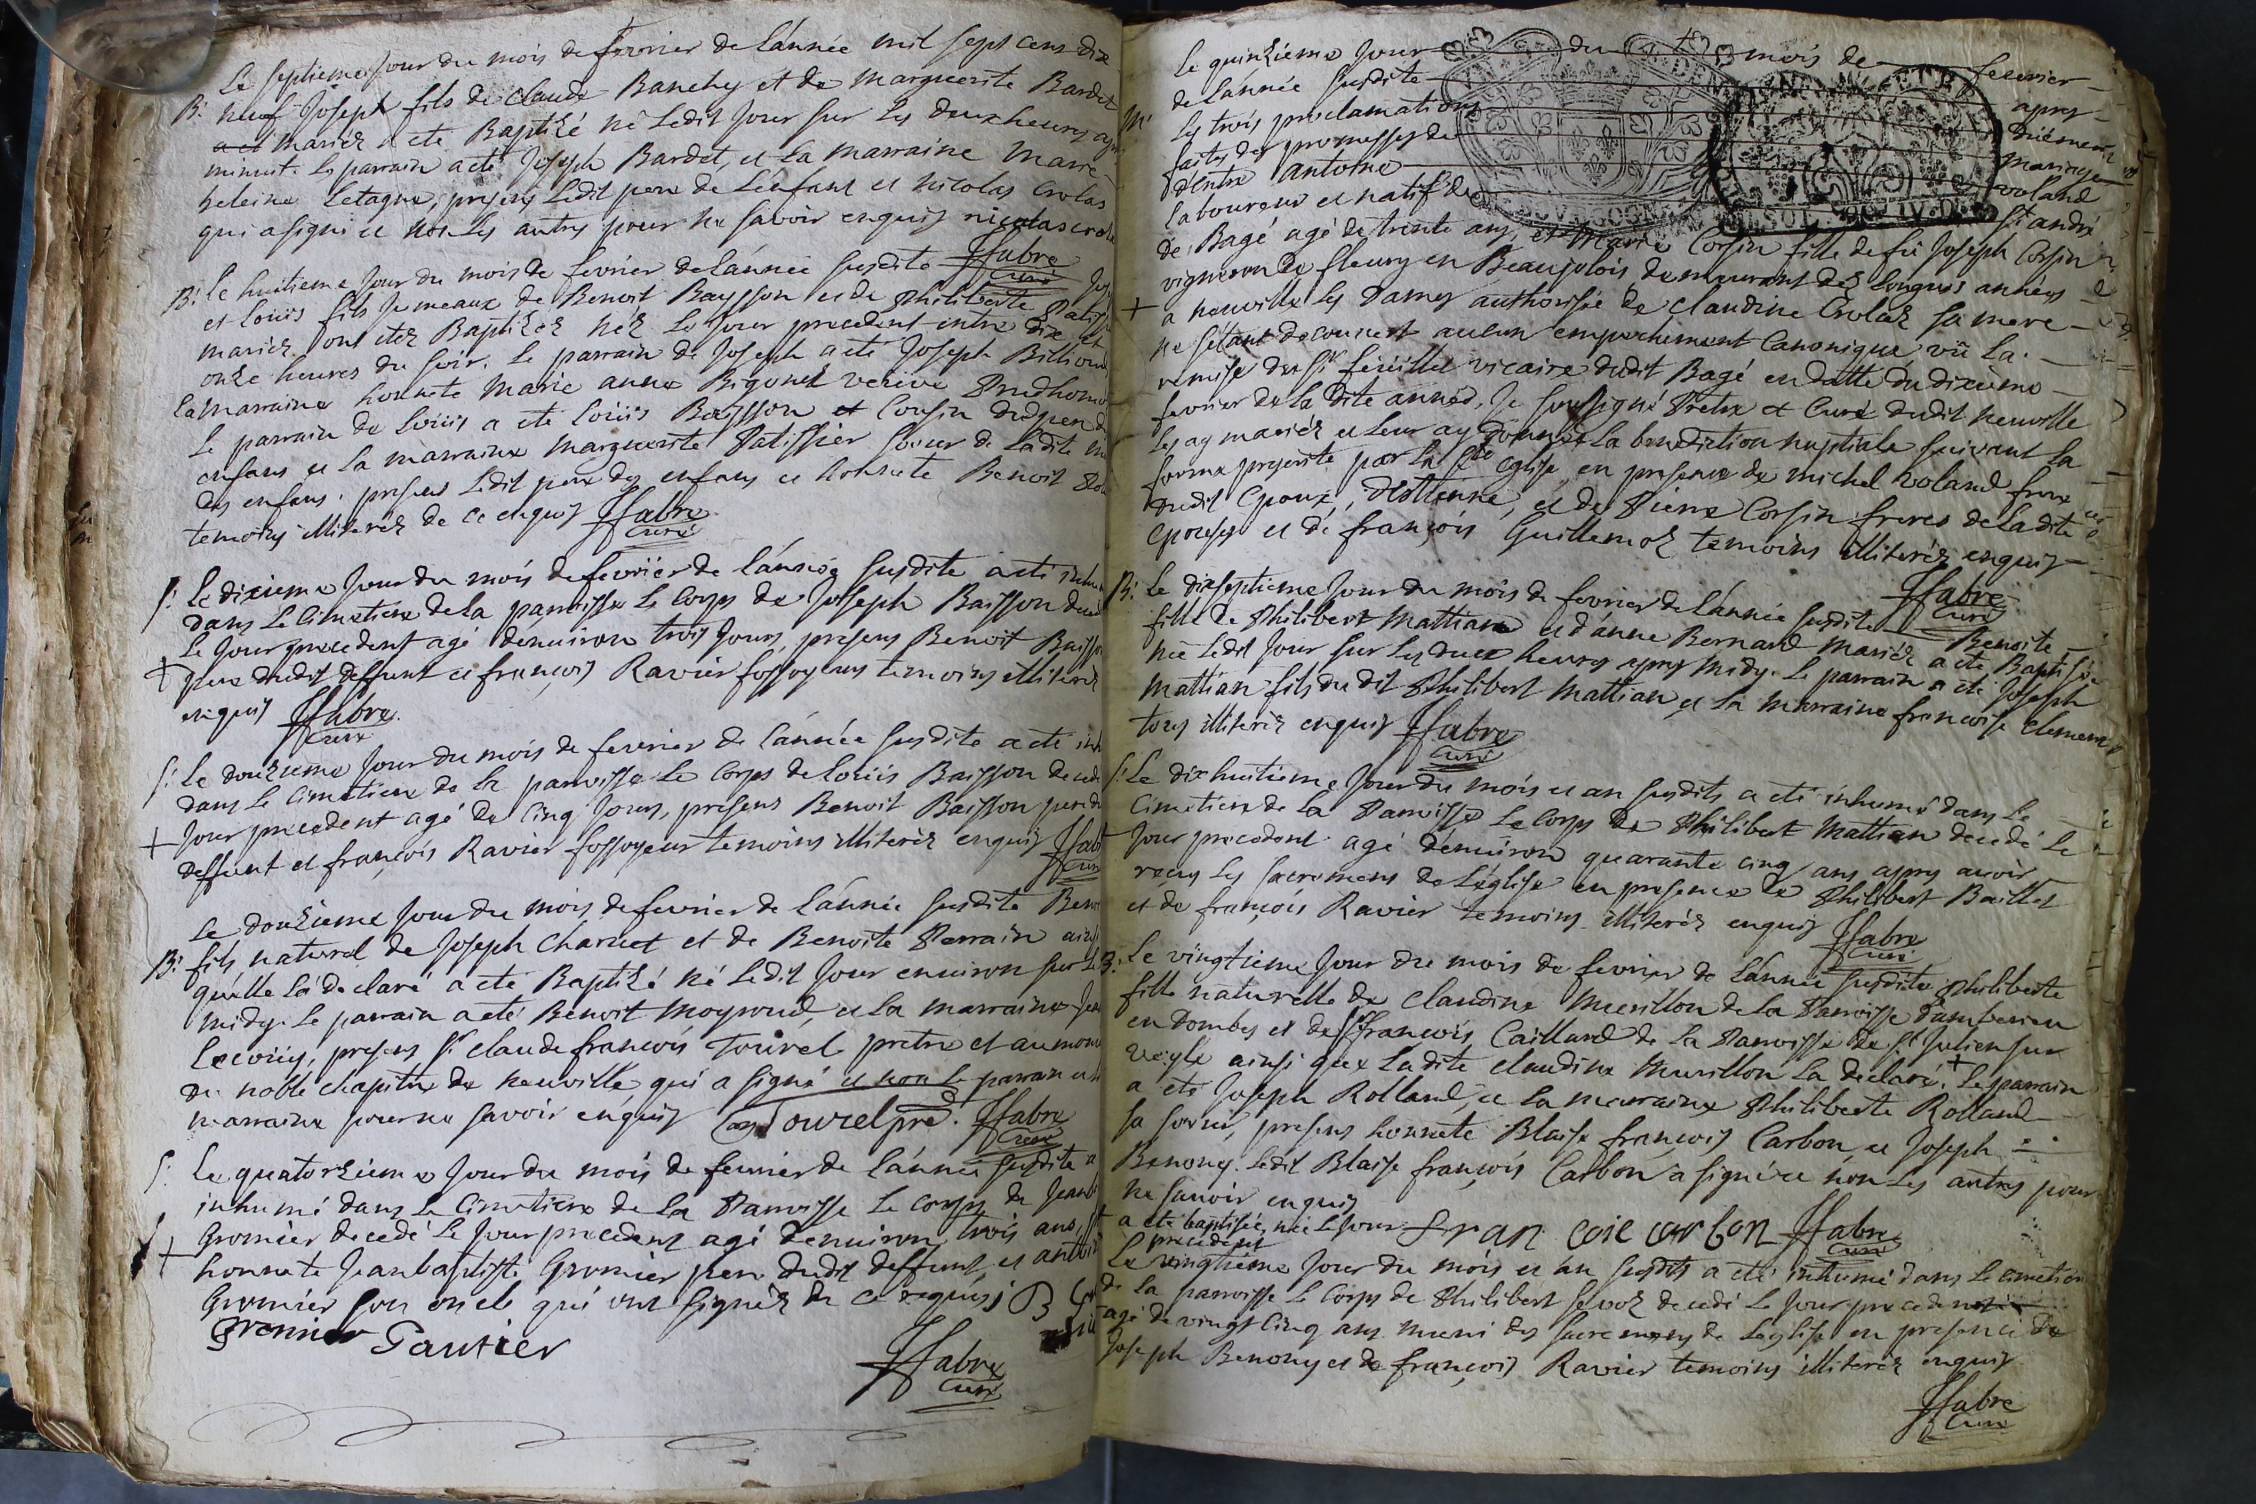 Le septieme Jour du mois de fevrier de lánnée mil sept cens dix
B: neuf Joseph fils de claude Banchy et de marguerite Bardet
mariés a eté Baptizé né Ledit Jour sur les deux heures
minuit. Le parrain a eté Joseph Bardet, et La marraine marre
heleine Letagne, presens Ledit pere de Lénfant et nicolas Crolas
qui a signé et non les autres pour ne savoir enquis nicolas
ffabre
Curé
B: Le huitieme Jour du mois de fevrier de lánnée susdite
et Loüis fils Jumeaux de Benoit Baysson et de Philiberte
mariés ont etez Baptizez néz Le Jour precedent entre dix et
onze heures du soir. Le parrain de Joseph a eté Joseph
La marraine honnete marie anne Bigonet veuve Prudhome
Le parrain de Loüis a eté Loüis Baysson et Cousin du pere
enfans et La marraine marguerite Patissier soeur de Ladite
des enfans. presens Ledit pere des enfans et honnete Benoit
temoins illiterés de ce enquis ffabre
Curé
S: Le dixieme Jour du mois de fevrier de lánnée susdite a eté
dans Le Cimetiere de la parroisse Le Corps de Joseph Baisson
Le Jour precedent agé dénuiron trois Jours, presens Benoit
+ pere dudit deffunt et françois Ravier fossoyeur temoins illiterés
enquis ffabre
Curé
S: Le douzieme Jour du mois de fevrier de Lánnée susdite a eté
dans Le Cimetiere de la parroisse Le Corps de Loüis Baisson
+ Jour precedent agé de Cinq Jours, presens Benoit Baisson pere du
deffunt et françois Ravier fossoyeur temoins illiterés enquis
Le douzieme Jour du mois de fevrier de lánnée susdite
B: fils naturel de Joseph Charuet et de Benoite Perrain
quélle lá declaré a eté Baptizé né Ledit Jour enuiron sur
midy. Le parrain a eté Benoit moyroud, et La marraine
presens Sr claude françois Tourel pretre et
du noble chapitre de neuville, qui a signé et non Le parrain
marraine pour ne savoir enquis Tourel pre. ffabre
Curé
S: Le quatorzieme Jour du mois de fevrier de Lánnée susdite
inhumé dans Le Cimetiere de La Parroisse Le Corps de
Gromier decedé Le Jour precedent agé dénuiron trois ans,
+ honnete Jean baptiste Gromier pere dudit deffunt et
Gromier son oncle qui ont signés de ce requis
Gromier Gautier
ffabre
Curé
Le quinzieme Jour du mois de feuvrier
de Lánnée susdite apres
les trois proclamations
faites des promesses de mariage
d'entre antoine roland
Laboureur et natif de St andré
de Bagé agé de trente ans, et Marie Corsin fille de fû Joseph Corsin
vigneron de fleury en Beaujolois demeurant des Longues années
+ a neuville les dames authorisée de Claudine Crolas sa mere
ne sétant decouuert aucun empechement Canonique vû La
remise du Sr feüillet vicaire dudit Bagé en datte du dixieme
fevrier de La dite année, Je soussigné Pretre et Curé dudit neuville
les ay mariés et leur ay donné La benediction nuptiale suivant La
forme prescrite par La Ste eglise en presence de michel roland frere
dudit Epoux, et de Pierre Corsin freres de Ladite
epouse et de françois Guillemot temoins illiterés enquis
ffabre
Curé
B: Le dixseptieme Jour du mois de fevrier de Lánnée susdite Benoite
fille de Philibert Mattian et dánne Bernard mariés a eté Baptisée
née Ledit Jour sur les deux heures apres midy. Le parrain a eté Joseph
Mattian fils dudit Philibert Mattian et La marraine francoise Clement
tous illiterés enquis ffabre
Curé
S: Le dixhuitieme Jour du mois et an susdits a eté inhumé dans Le
Cimetiere de La Parroisse Le Corps de Philibert Mattian decedé Le
+ Jour precedent agé dénuiron quarante cinq ans apres avoir
recus les sacremens de Léglise en presence de Philibert Baillet
et de françois Ravier temoins illiterés enquis ffabre
Curé
B: Le vingtieme Jour du mois de fevrier de Lánnée susdite Philiberte
fille naturelle de Claudine Murillon de la Parroisse dámberieu
en Dombes et de françois Caillard de La Parroisse de St Julien sur
veyle ainsi que Ladite Claudine Murillon La declaré. + Le parrain
a eté Joseph Rolland, et La marraine Philiberte Rolland
sa soeur, presens honnete Blaise françois Carbon, et Joseph
Benony. Ledit Blaise françois Carbon a signé et non Les autres pour
ne sauoir enquis
a eté baptisée, née Le Jour precedent fran coie carbon ffabre
Curé
Le vingtieme Jour du mois et an susdits a eté inhumé dans Le Cimetiere
de La parroisse Le Corps de Philibert decedé Le Jour precedent
agé de vingt cinq ans muni des sacremens de Léglise en presence de
Joseph Benony et de françois Ravier temoins illiterés enquis
ffabre
Curé